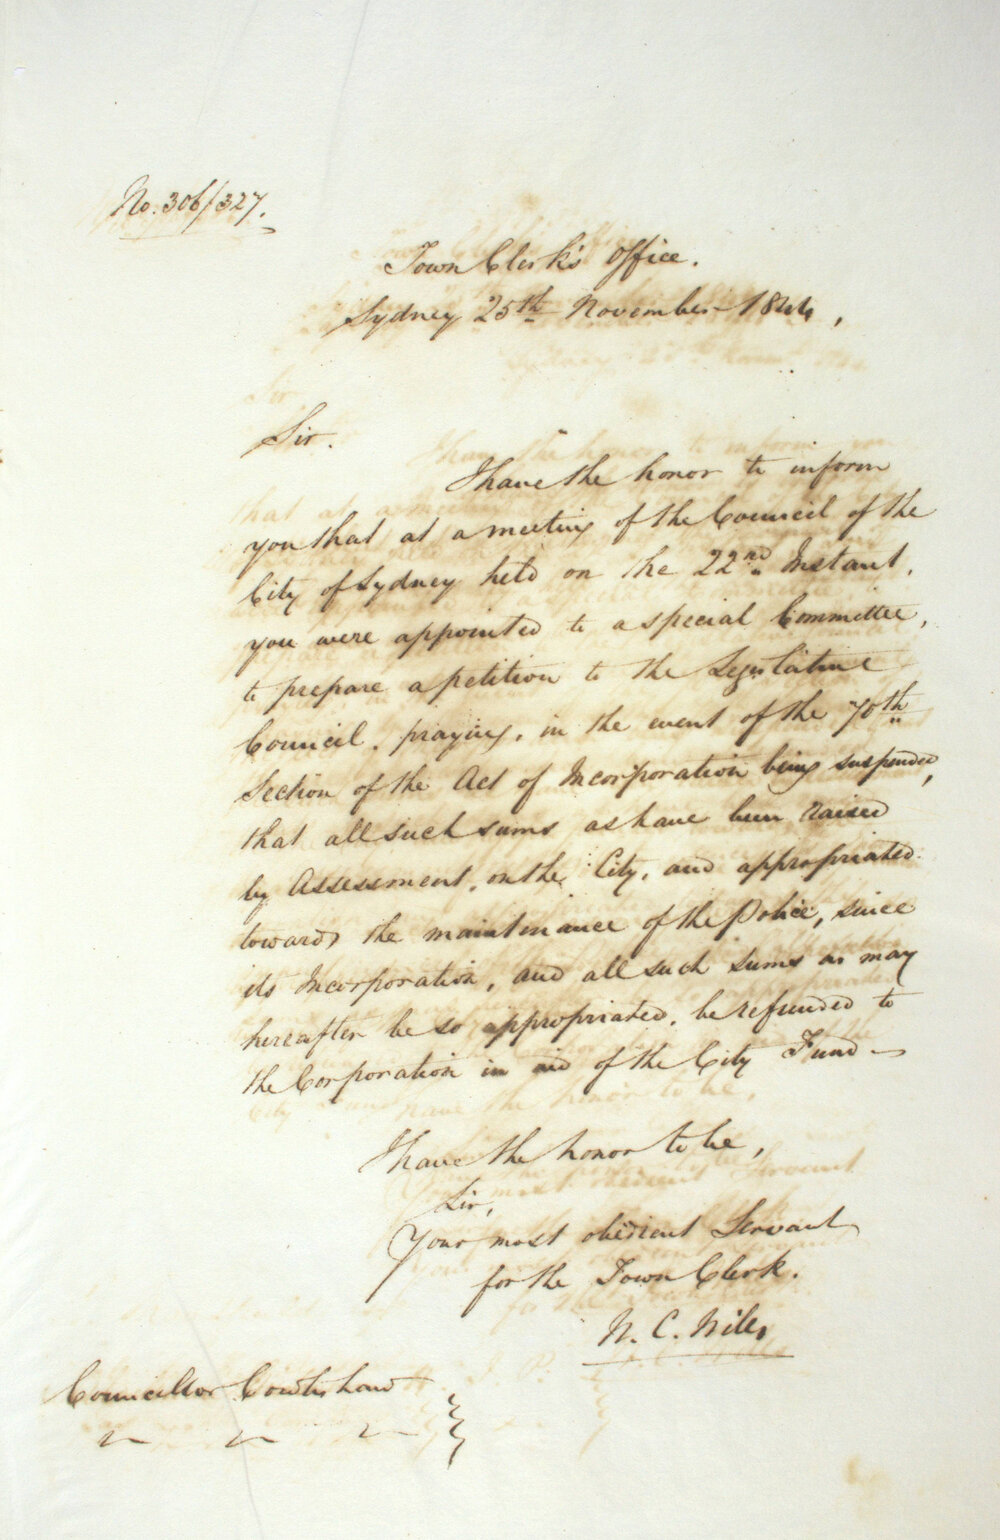 No. 306/327.
Town Clerk's Office.
Sydney 25th November 1844,
Sir.
I have the honor to inform
you that at a meeting of the Council of the
City of Sydney held on the 22nd Instant,
you were appointed to a special Committee,
to prepare a petition to the Legislative
Council, praying, in the event of the 70th
Section of the Act of Incorporation being suspended,
that all such sums as have been raised
by Assessment, on the City, and appropriated
towards the maintenance of the Police, since
its Incorporation, and all such sums as may
hereafter be so appropriated, be refunded to
the Corporation in aid of the City Fund—
I have the honor to be,
Sir,
Your most obedient Servant
for the Town Clerk.
N. C.
Councillor